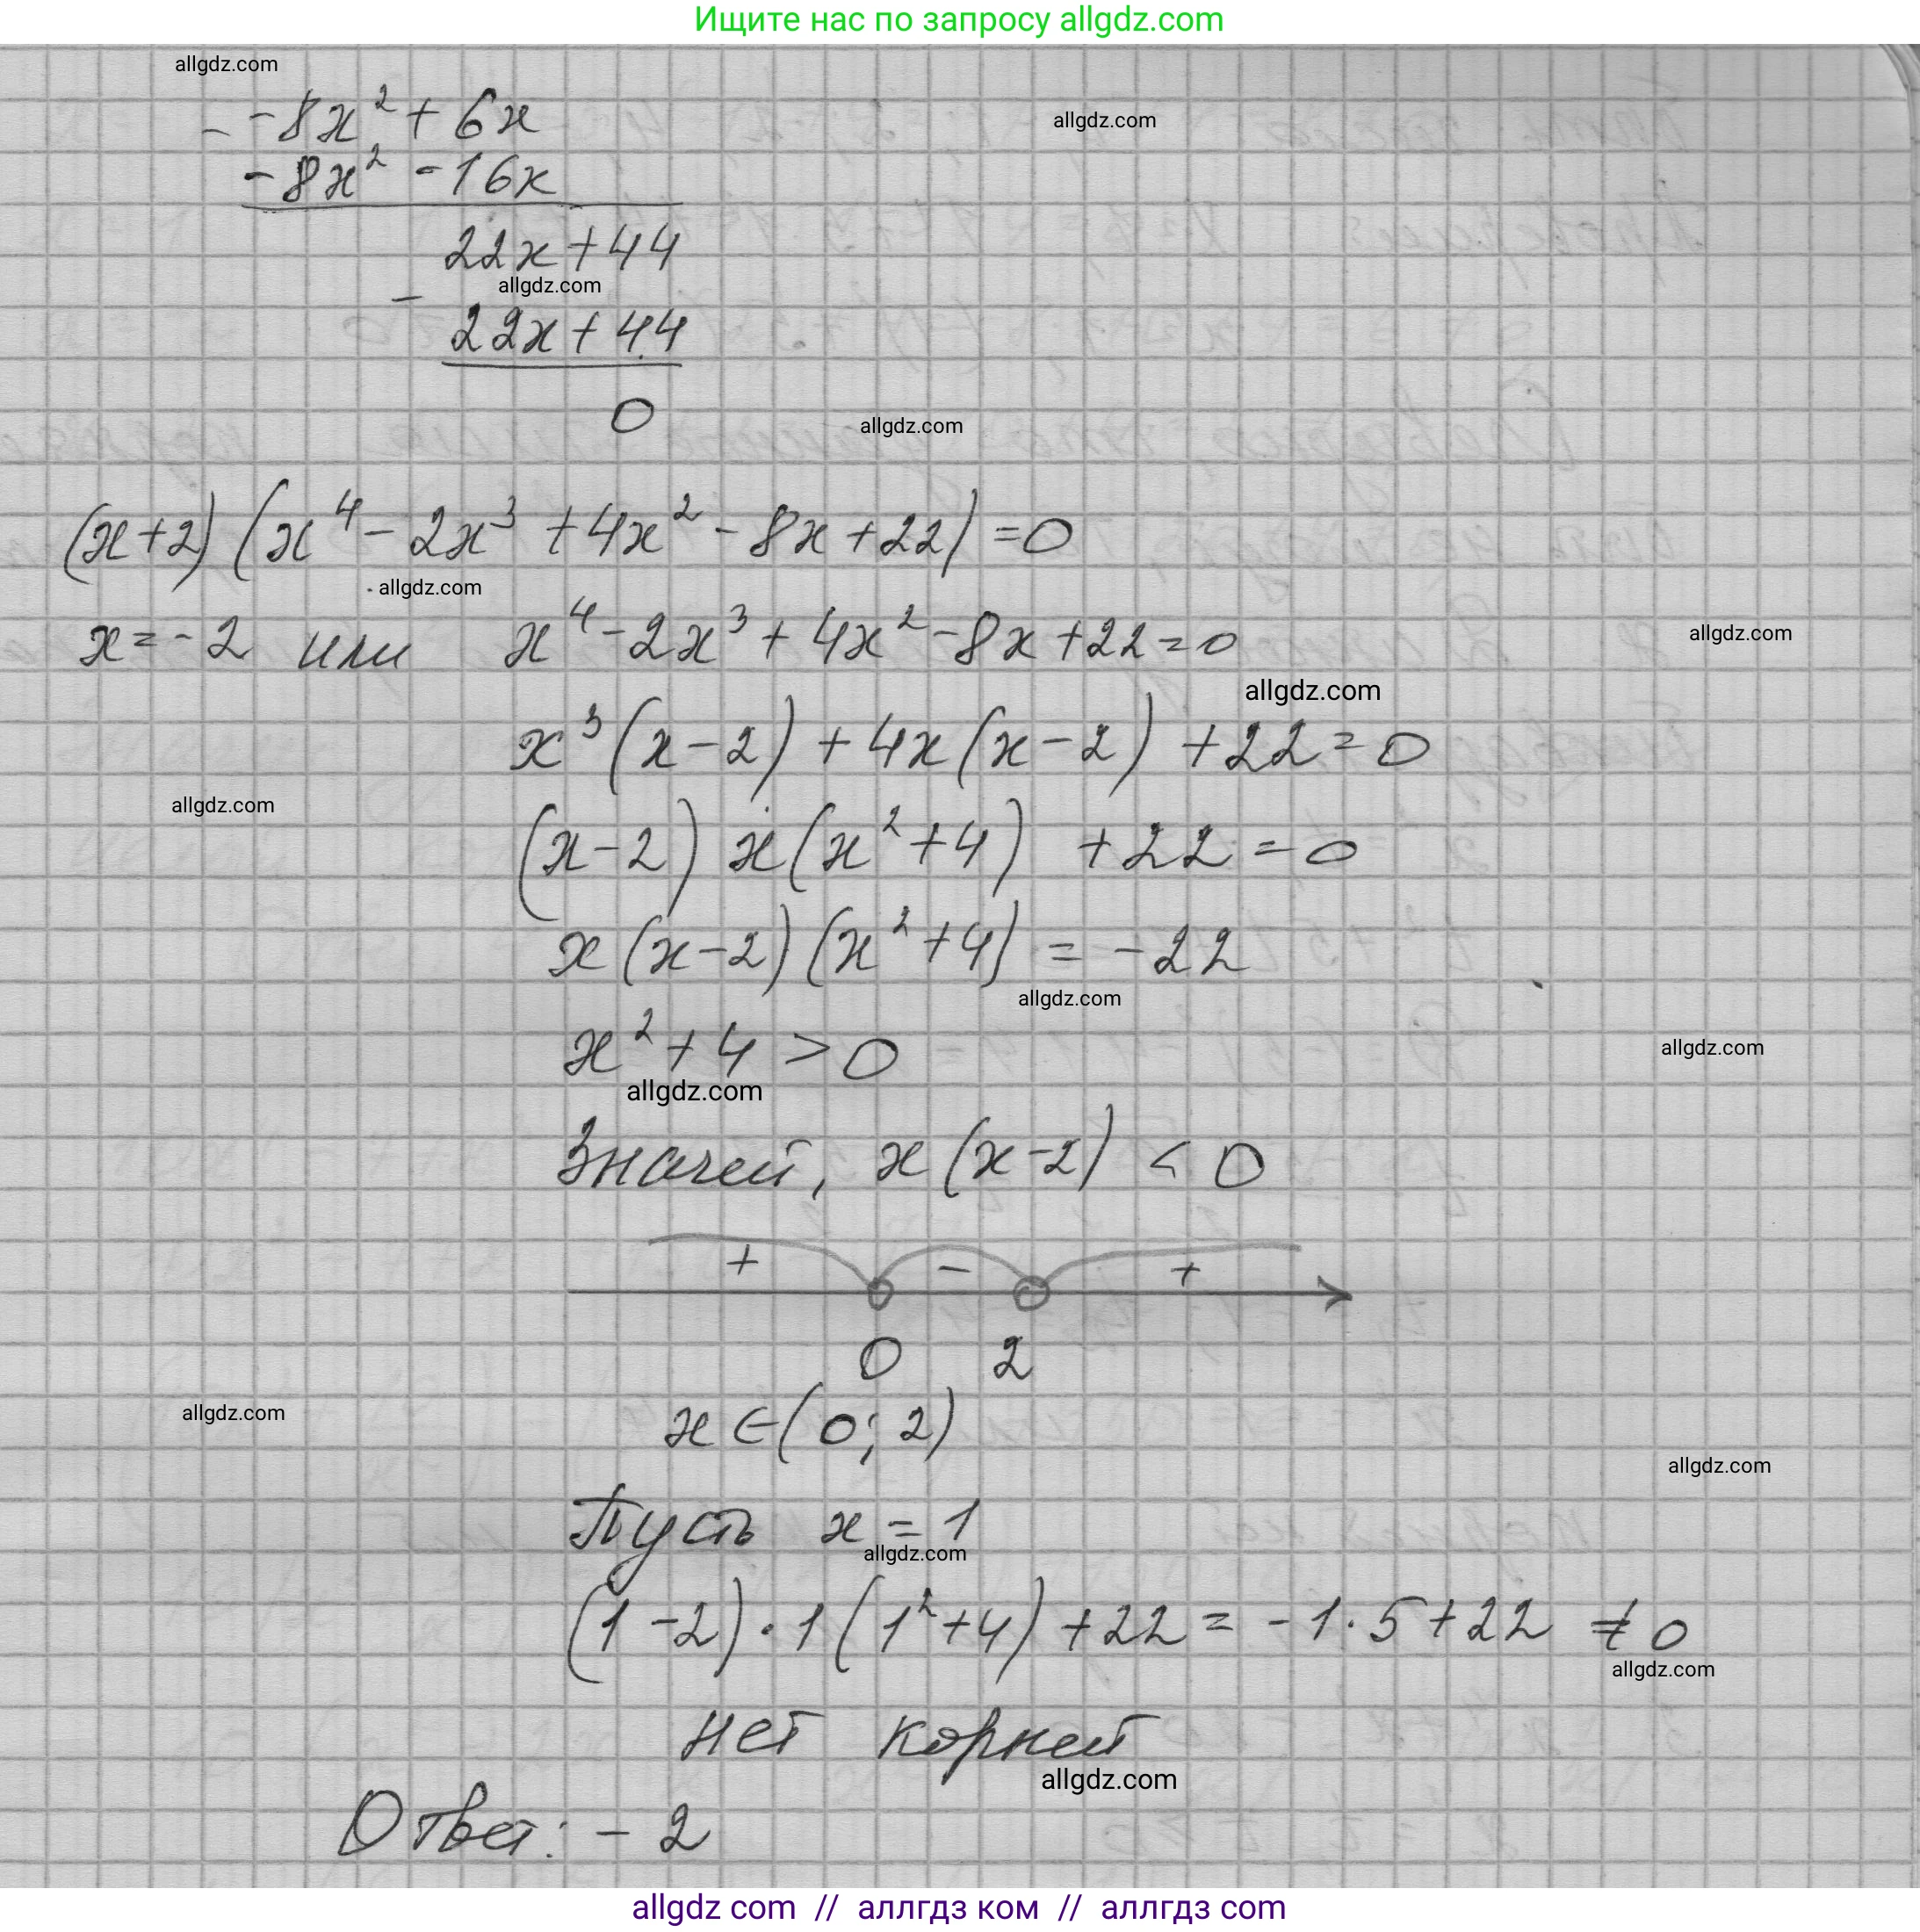 Ищите нас по запросу allgdz.com
allgdz.com
- -8x² + 6x
allgdz.com
-8x² - 16x
22x + 44
allgdz.com
-
22x + 44
0
allgdz.com
(x+2) (x⁴ - 2x³ + 4x² - 8x + 22) = 0
allgdz.com
x = -2 или x⁴ - 2x³ + 4x² - 8x + 22 = 0
allgdz.com
allgdz.com
x³(x - 2) + 4x(x - 2) + 22 = 0
allgdz.com
(x - 2) x(x² + 4) + 22 = 0
x(x - 2)(x² + 4) = -22
allgdz.com
x² + 4 > 0
allgdz.com
allgdz.com
Значит, x(x - 2) < 0
+ - +
0 2
allgdz.com
x ∈ (0; 2)
allgdz.com
Пусть x = 1
allgdz.com
(1 - 2) · 1(1² + 4) + 22 = -1 · 5 + 22 ≠ 0
allgdz.com
нет корней
allgdz.com
Ответ: -2
allgdz com // аллгдз ком // аллгдз com